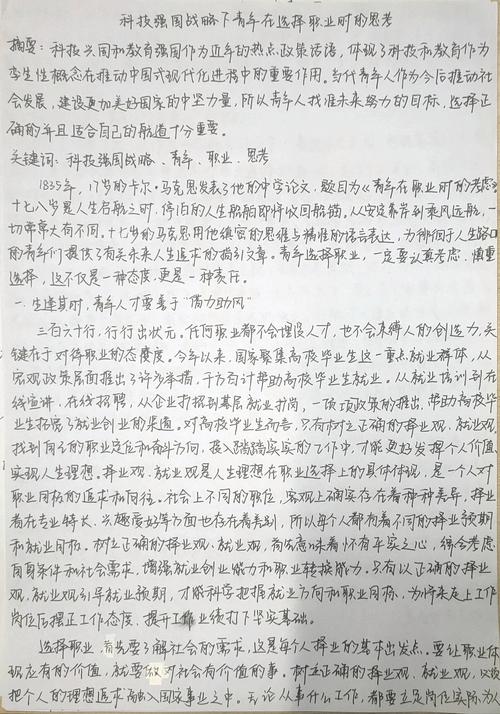 科技强国战略下青年在选择职业时的思考
摘要：科技兴国和教育强国作为近年的热点政策话语，体现了科技和教育作为
孪生性概念在推动中国式现代化进程中的重要作用。当代青年人作为今后推动社
会发展，建设更加美好国家的中坚力量，所以青年人找准未来努力的目标，选择正
确的并且适合自己的航道十分重要。
关键词：科技强国战略、青年、职业、思考
1835年，17岁的卡尔·马克思发表了他的中学论文，题目为《青年在职业时的考虑》
十七八岁是人生启航之时，停泊的人生船舶即将收回船锚。从安定靠岸到乘风远航，一
切都常大有不同。十七岁的马克思用他缜密的思维与精准的语言表达，为徘徊于人生路口
的青年们提供了有关未来人生追求的指引文章。青年选择职业，一定要认真考虑、慎重
选择，这不仅是一种态度，更是一种责任。
一．生逢其时，青年人才要善于“借力助风”
三百六十行，行行出状元。任何职业都不会埋没人才，也不会束缚人的创造力，关
键在于对待职业的态度。今年以来，国家聚集高校毕业生这一重点就业群体，从
宏观政策层面推出了许多举措，千方百计帮助高校毕业生就业。从就业培训到在
线宣讲、在线招聘，从企业扩招到基层就业扩岗，一项项政策的推出，帮助高校毕业
生拓展了就业创业的渠道。对高校毕业生而言，只有树立正确的择业观、就业观，
找到自己的职业定位和奋斗方向，投入踏踏实实的工作中，才能更好发挥个人价值、
实现人生理想。择业观、就业观是人生理想在职业选择上的具体体现，是一个人对
职业目标的追求和向往。社会上不同的职位，客观上确实存在着种种差异，择业
者在专业特长、兴趣爱好等方面也存在着差别，所以每个人都有着不同的择业预期
和就业目标。树立正确的择业观、就业观，首先意味着怀有平实之心，综合考虑
自身条件和社会需求，增强就业创业能力和职业转换能力。只有以正确的择业
观、就业观引导就业预期，才能科学把握就业方向和职业目标，为将来走上工作
岗位后摆正工作态度、提升工作业绩打下坚实基础。
选择职业，首先要了解社会的需求，这是每个人择业的基本出发点。要让职业体
现应有的价值，就要做对社会有价值的事。树立正确的择业观、就业观，必须
把个人的理想追求融入国家事业之中。无论从事什么工作，都要立足岗位实际，为人